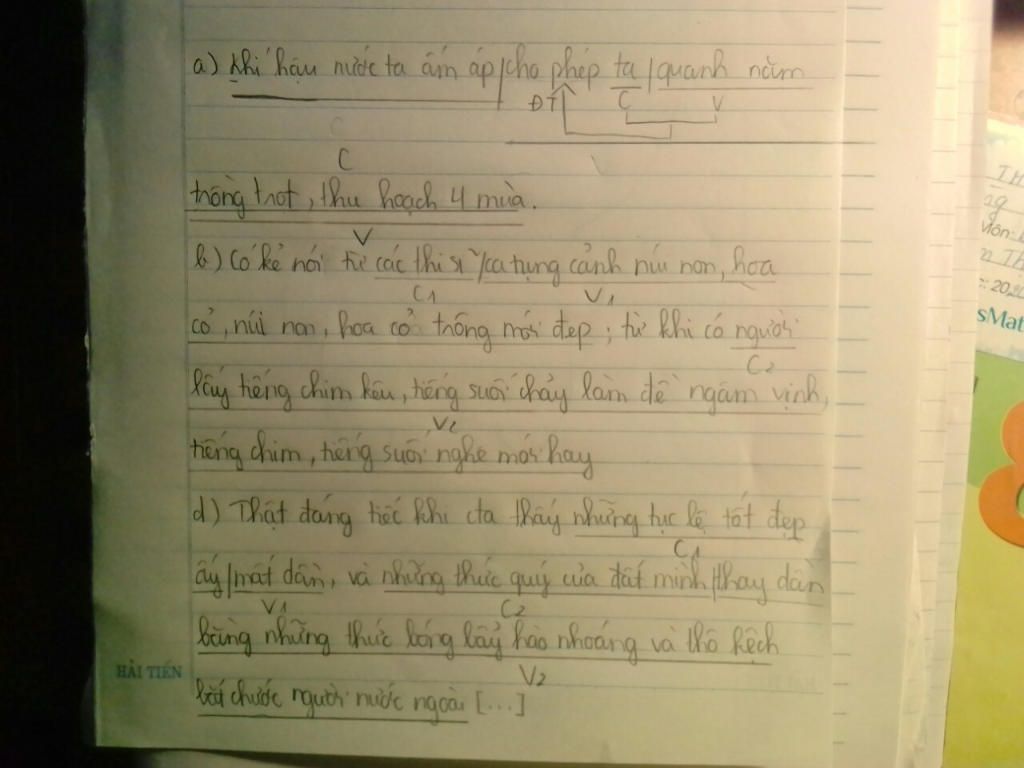 a) Khí hậu nước ta ấm áp/cho phép ta/quanh năm
ĐT C V
C
trồng trọt, thu hoạch 4 mùa.
V
b) Có kẻ nói từ các thi sĩ/ca tụng cảnh núi non, hoa
C1 V1
cỏ, núi non, hoa cỏ trông mới đẹp; từ khi có người
C2
lấy tiếng chim kêu, tiếng suối chảy làm đề ngâm vịnh,
V2
tiếng chim, tiếng suối nghe mới hay
d) Thật đáng tiếc khi cta thấy những tục lệ tốt đẹp
C1
ấy/mất dần, và những thức quý của đất mình/thay dần
V1 C2
bằng những thức bóng bẩy hào nhoáng và thô kệch
V2
bắt chước người nước ngoài [...]
HẢI TIẾN